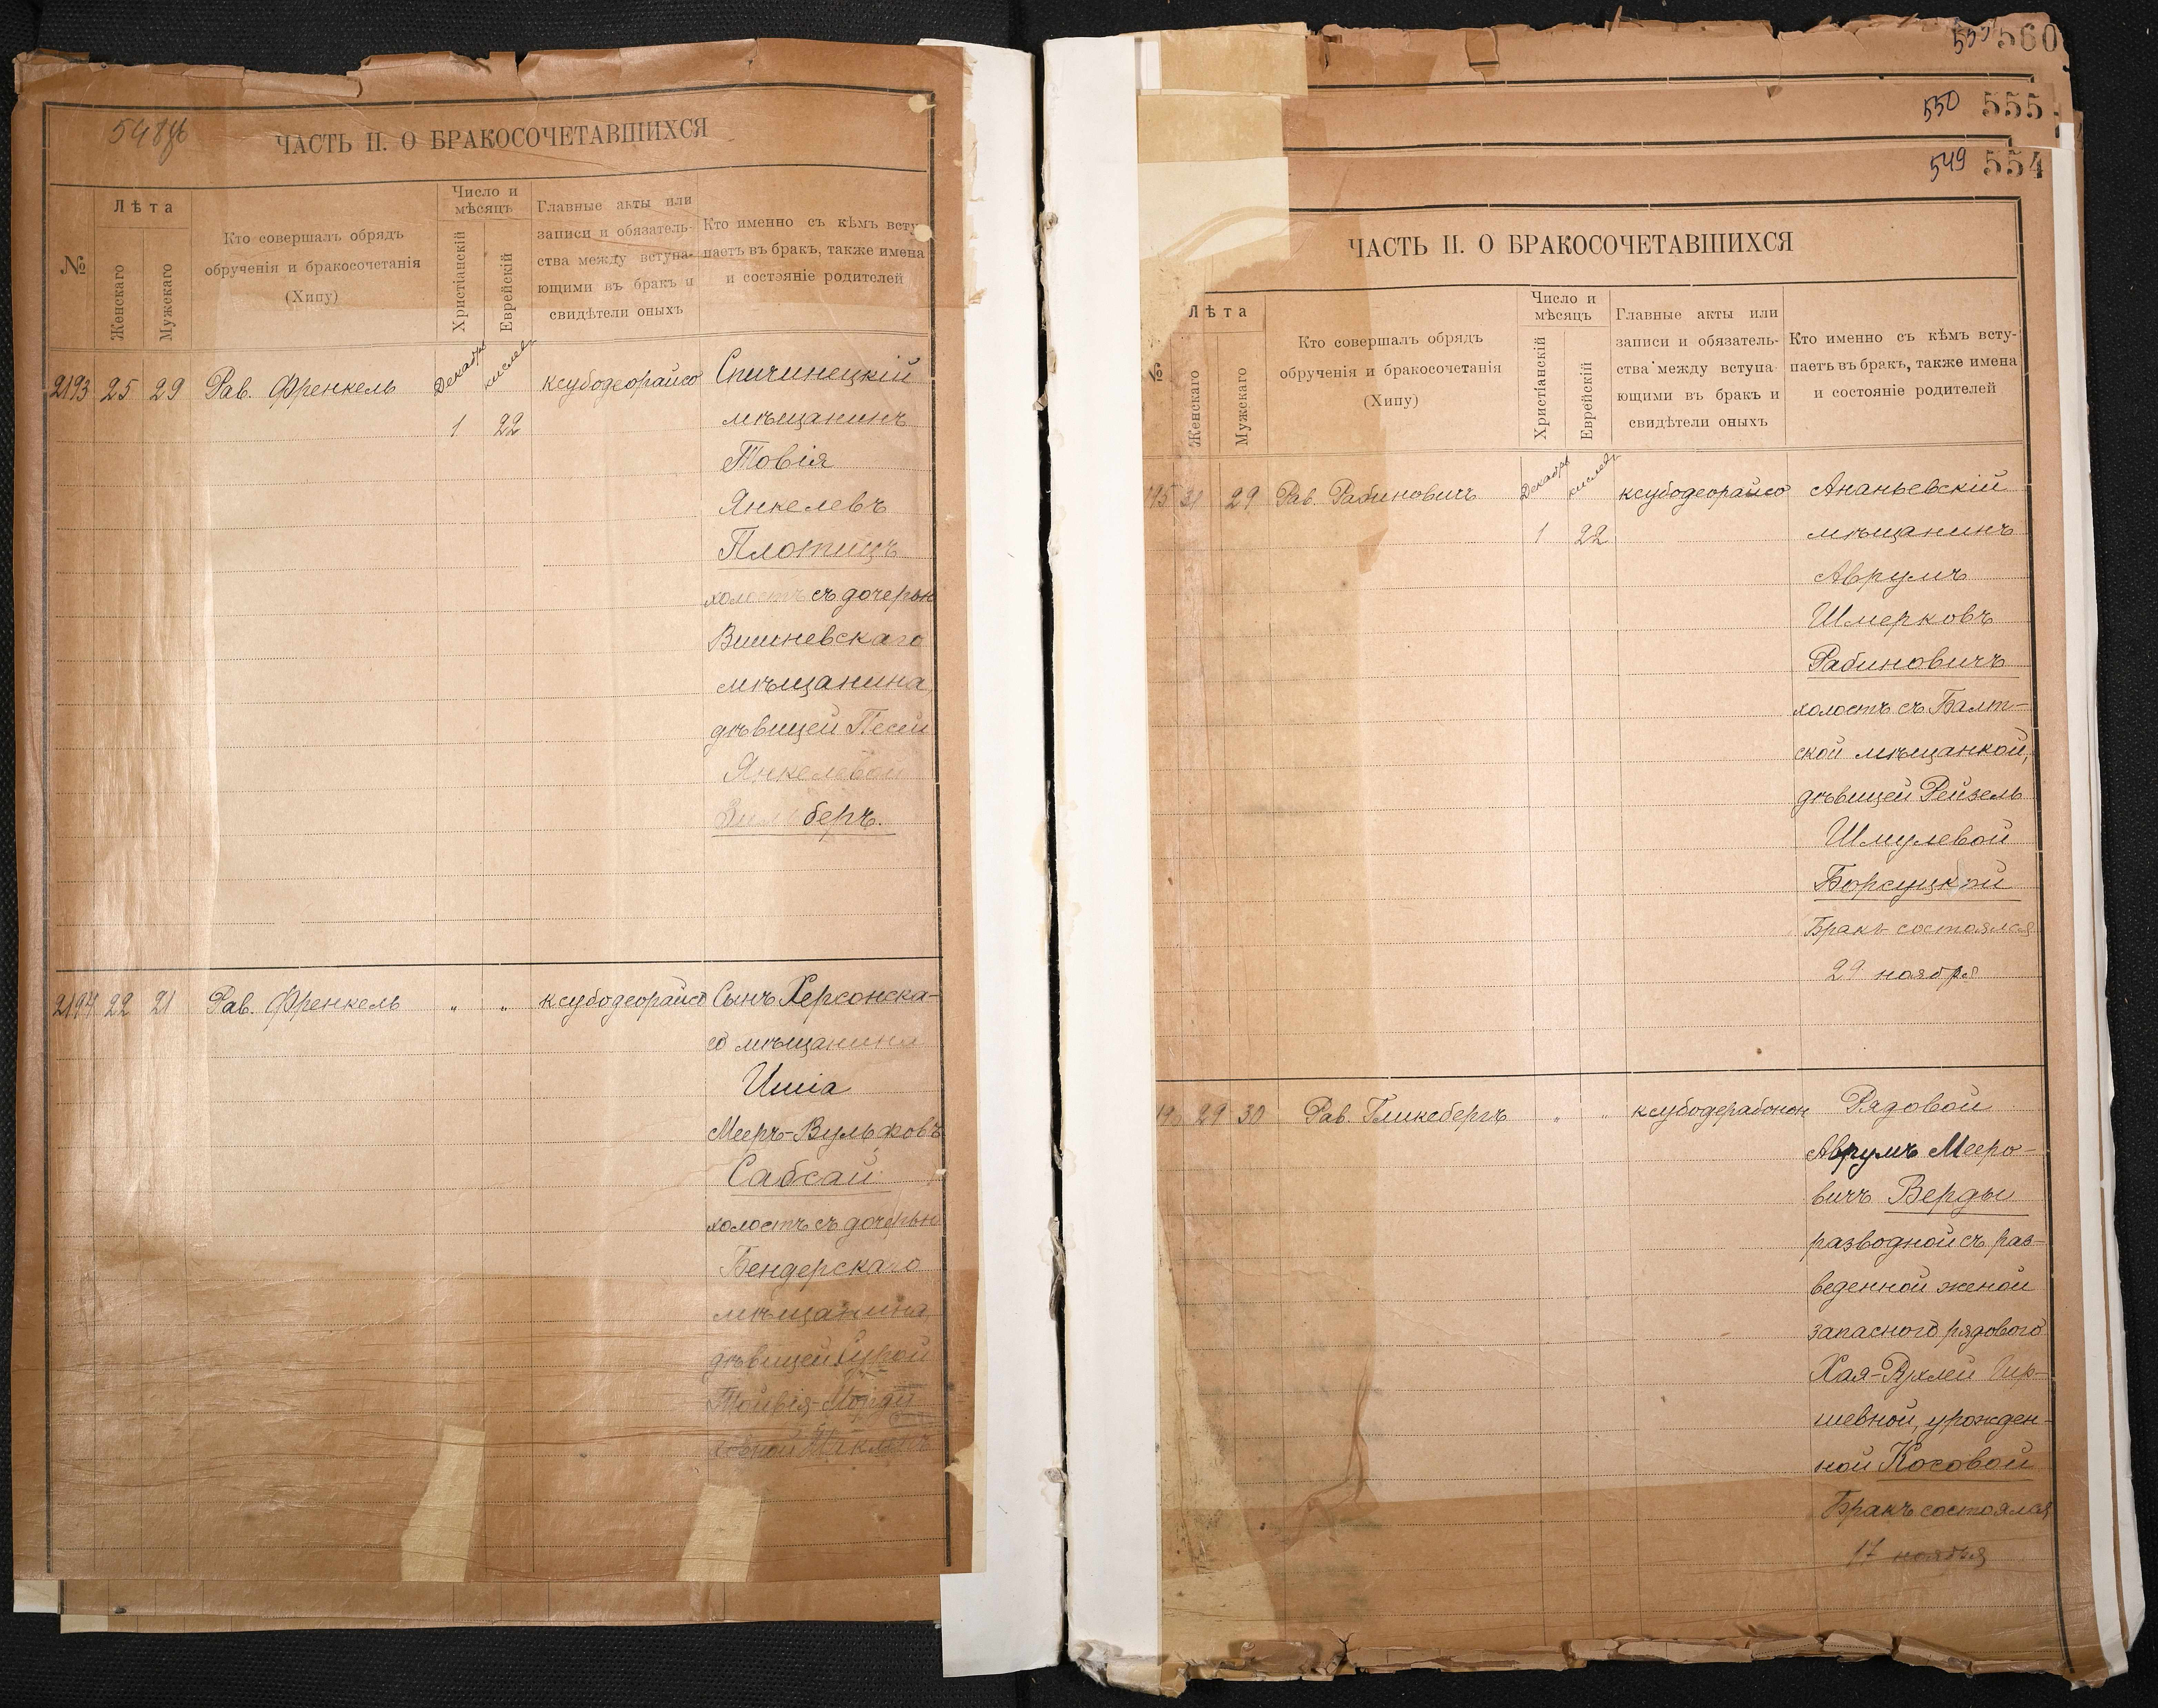 ЧАСТЬ II. О БРАКОСОЧЕТАВШИХСЯ
№
Лѣта
Женскаго
Мужскаго
Кто совершалъ обрядъ
обрученія и бракосочетанія
(Хипу)
Число и
мѣсяцъ
Христіанскій
Еврейскій
Главные акты или
записи и обязатель-
ства между вступа-
ющими въ бракъ и
свидѣтели оныхъ
Кто именно съ кѣмъ всту
паетъ въ бракъ, также имена
и состояніе родителей
2193 25 29 Рав. Френкель Декабрь кислевъ ксубодеорайсо Спичинецкій
1 22 мѣщанинъ
Товія
Янкелевъ
Плотицъ
холостъ съ дочерью
Вишневскаго
мѣщанина,
дѣвицей Песей
Янкелевой
беръ.
2194 22 21 Рав. Френкель " " ксубодеорайсо Сынъ Херсонска-
го мѣщанина
Ишіа
Мееръ-Вульфовъ
Сабсай
холостъ съ дочерью
Бендерскаго
мѣщанина,
дѣвицей Сурой
555 560
550 555
549 554
ЧАСТЬ II. О БРАКОСОЧЕТАВШИХСЯ
№
Лѣта
Женскаго
Мужскаго
Кто совершалъ обрядъ
обрученія и бракосочетанія
(Хипу)
Число и
мѣсяцъ
Христіанскій
Еврейскій
Главные акты или
записи и обязатель-
ства между вступа-
ющими въ бракъ и
свидѣтели оныхъ
Кто именно съ кѣмъ всту-
паетъ въ бракъ, также имена
и состояніе родителей
195 31 29 Рав. Рабиновичъ Декабрь кислевъ ксубодеорайсо Ананьевскій
1 22 мѣщанинъ
Аврумъ
Шмерковъ
Рабиновичъ
холостъ съ Балт-
ской мѣщанкой,
дѣвицей Рейзель
Шмулевой
Борсуцкой
Бракъ состоялся
29 ноября
29 30 Рав. Гликсбергъ " " ксубодерабонон Рядовой
Аврумъ Мееро-
вичъ Верды
разводной съ раз-
веденной женой
запасного рядового
Хая-Рухлей Гир-
шевной, урожден-
ной Косовой
Бракъ состоялся
17 ноября